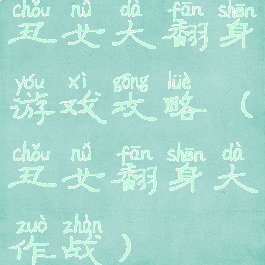 chǒu nǚ dà fān shēn
丑女大翻身
yóu xì gōng lüè
游戏攻略（
chǒu nǚ fān shēn dà
丑女翻身大
zuò zhàn
作战）